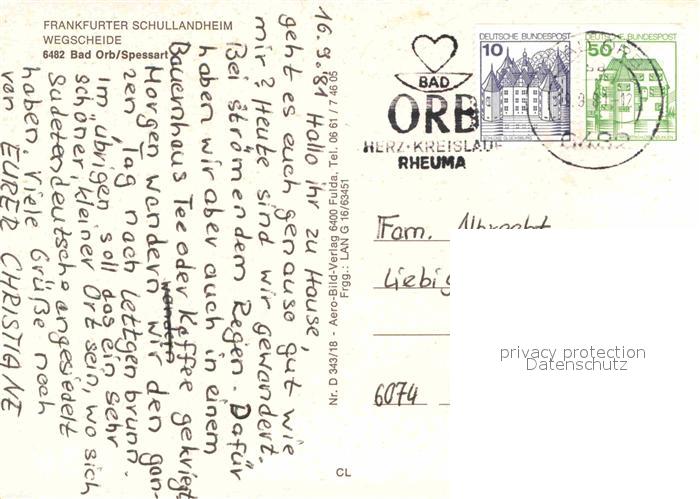 FRANKFURTER SCHULLANDHEIM
WEGSCHEIDE
6482 Bad Orb/Spessart
16.9.81 Hallo ihr zu Hause,
geht es euch genauso gut wie
mir? Heute sind wir gewandert.
Bei strömendem Regen. Dafür
haben wir aber auch in einem
Bauernhaus Tee oder Kaffee gekriegt
Morgen wandern wir den gan-
zen Tag nach Lettgenbrunn.
Im übrigen soll das ein sehr
schöner, kleiner Ort sein, wo sich
Sudetendeutsche angesiedelt
haben. Viele Grüße noch
von EURER CHRISTIANE
Nr. D 343/18 - Aero-Bild-Verlag 6400 Fulda, Tel. 06 61 / 7 46 05
Frgg.: LAN G 16/63451
CL
BAD
ORB
HERZ-KREISLAUF
RHEUMA
DEUTSCHE BUNDESPOST
10
DEUTSCHE BUNDESPOST
50
Fam. Albrecht
Liebig
6074
privacy protection
Datenschutz